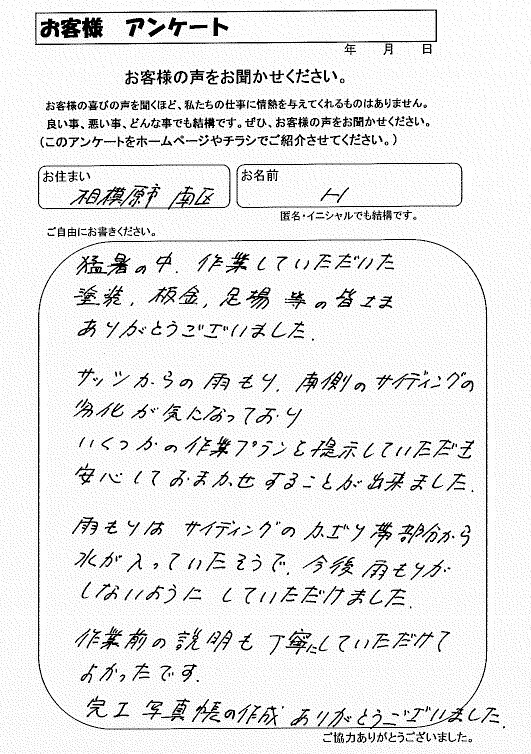 お客様 アンケート
年 月 日
お客様の声をお聞かせください。
お客様の喜びの声を聞くほど、私たちの仕事に情熱を与えてくれるものはありません。
良い事、悪い事、どんな事でも結構です。ぜひ、お客様の声をお聞かせください。
(このアンケートをホームページやチラシでご紹介させてください。)
お住まい 相模原市 南区 お名前 H
匿名・イニシャルでも結構です。
ご自由にお書きください。
猛暑の中、作業していただいた
塗装、板金、足場 等の皆さま
ありがとうございました.
サッシからの雨もり、南側のサイディングの
劣化が気になっており
いくつかの作業プランを提示していただき
安心しておまかせすることが出来ました.
雨もりは サイディングのカざり帯部分から
水が入っていたそうで、今後雨もりが
しないように していただけました.
作業前の説明も丁寧にしていただけて
よかったです.
完工 写真帳の作成 ありがとうございました.
ご協力ありがとうございました。